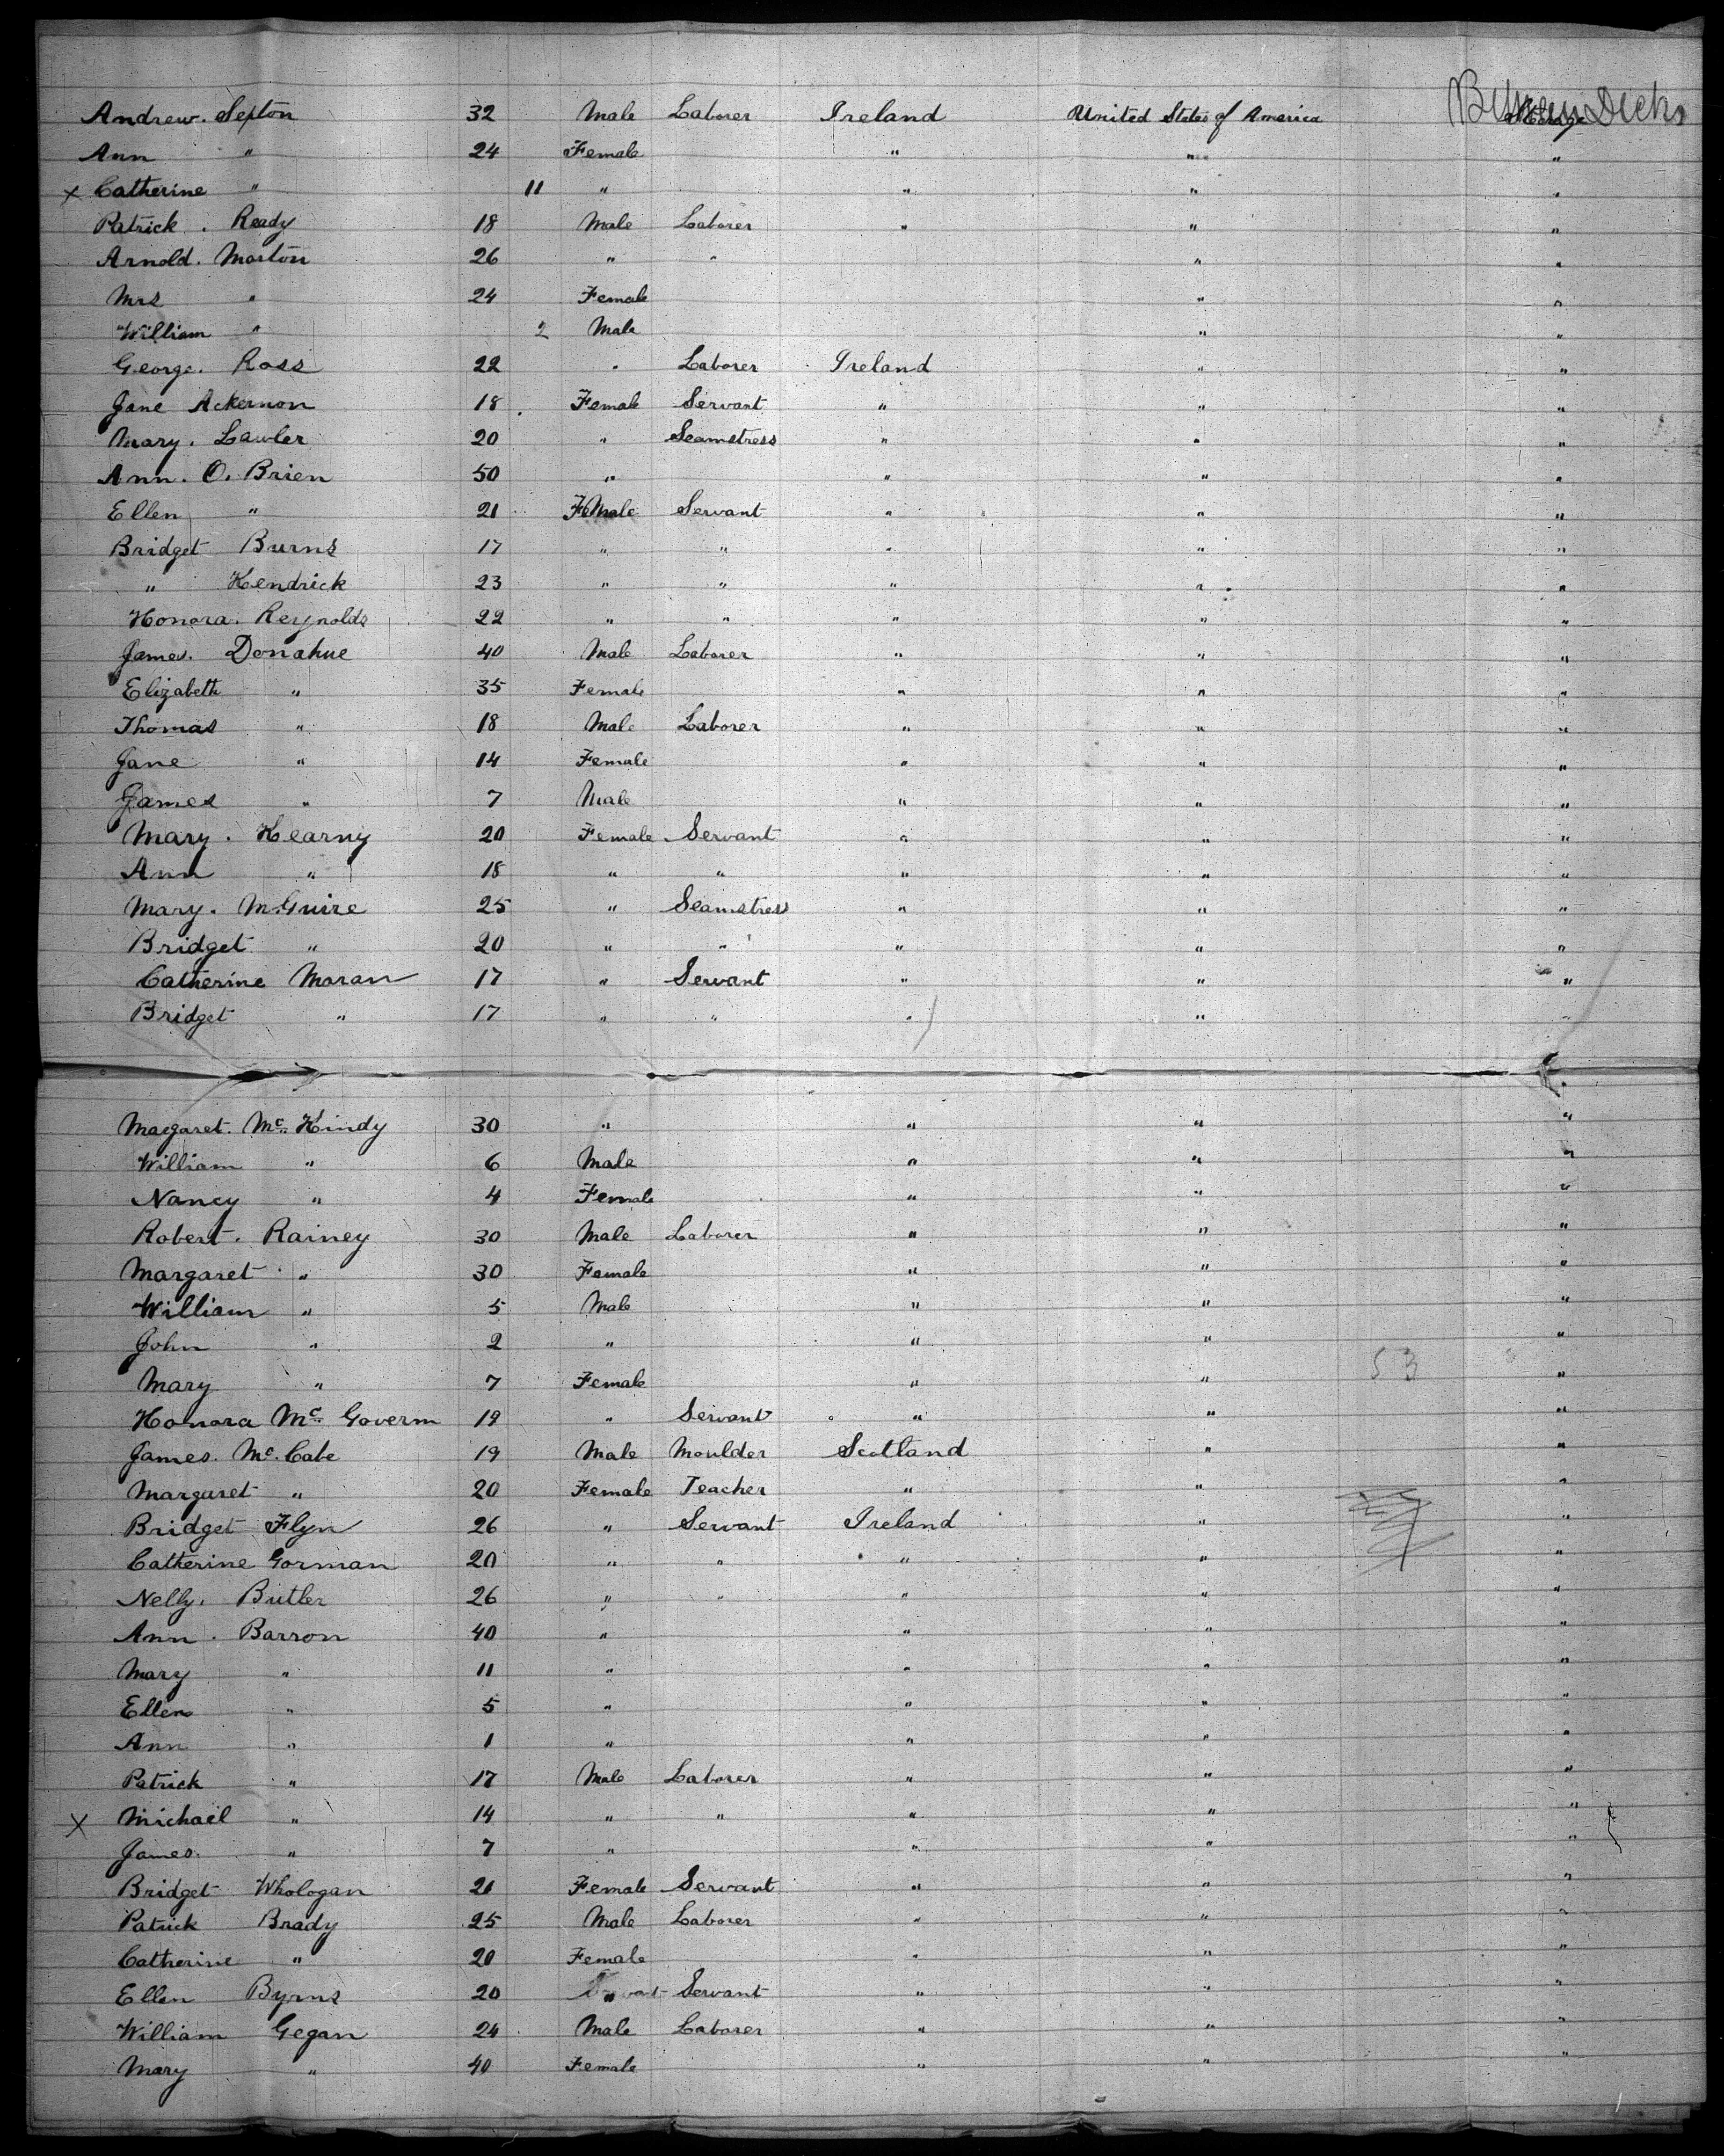 Andrew. Septon 32 Male Laborer Ireland United States of America Between Decks
Ann " 24 Female " " "
x Catherine " 11 " " " "
Patrick . Ready 18 Male Laborer " " "
Arnold. Morton 26 " " " "
Mrs " 24 Female " "
William " 2 Male " "
George. Ross 22 " Laborer Ireland " "
Jane Ackernon 18 Female Servant " " "
Mary. Lawler 20 " Seamstress " " "
Ann. O. Brien 50 " " " "
Ellen " 21 Female Servant " " "
Bridget Burns 17 " " " " "
" Kendrick 23 " " " " "
Honora. Reynolds 22 " " " " "
James. Donahue 40 Male Laborer " " "
Elizabeth " 35 Female " " "
Thomas " 18 Male Laborer " " "
Jane " 14 Female " " "
James " 7 Male " " "
Mary. Kearny 20 Female Servant " " "
Ann " 18 " " " " "
Mary. McGuire 25 " Seamstress " " "
Bridget " 20 " " " " "
Catherine Moran 17 " Servant " " "
Bridget " 17 " " " " "
Margaret. Mc Kindy 30 " " " "
William " 6 Male " " "
Nancy " 4 Female " " "
Robert. Rainey 30 Male Laborer " " "
Margaret " 30 Female " " "
William " 5 Male " " "
John " 2 " " " "
Mary " 7 Female " " 53 "
Honora Mc Goverm 19 " Servant " " "
James. Mc. Cabe 19 Male Moulder Scotland " "
Margaret " 20 Female Teacher " " "
Bridget Flyn 26 " Servant Ireland " "
Catherine Gorman 20 " " " " "
Nelly. Butler 26 " " " " "
Ann. Barron 40 " " " "
Mary " 11 " " " "
Ellen " 5 " " " "
Ann " 1 " " " "
Patrick " 17 Male Laborer " " "
x Michael " 14 " " " " "
James. " 7 " " " "
Bridget Whologan 21 Female Servant " " "
Patrick Brady 25 Male Laborer " " "
Catherine " 20 Female " " "
Ellen Byrns 20 " Servant " " "
William Gegan 24 Male Laborer " " "
Mary " 40 Female " " "